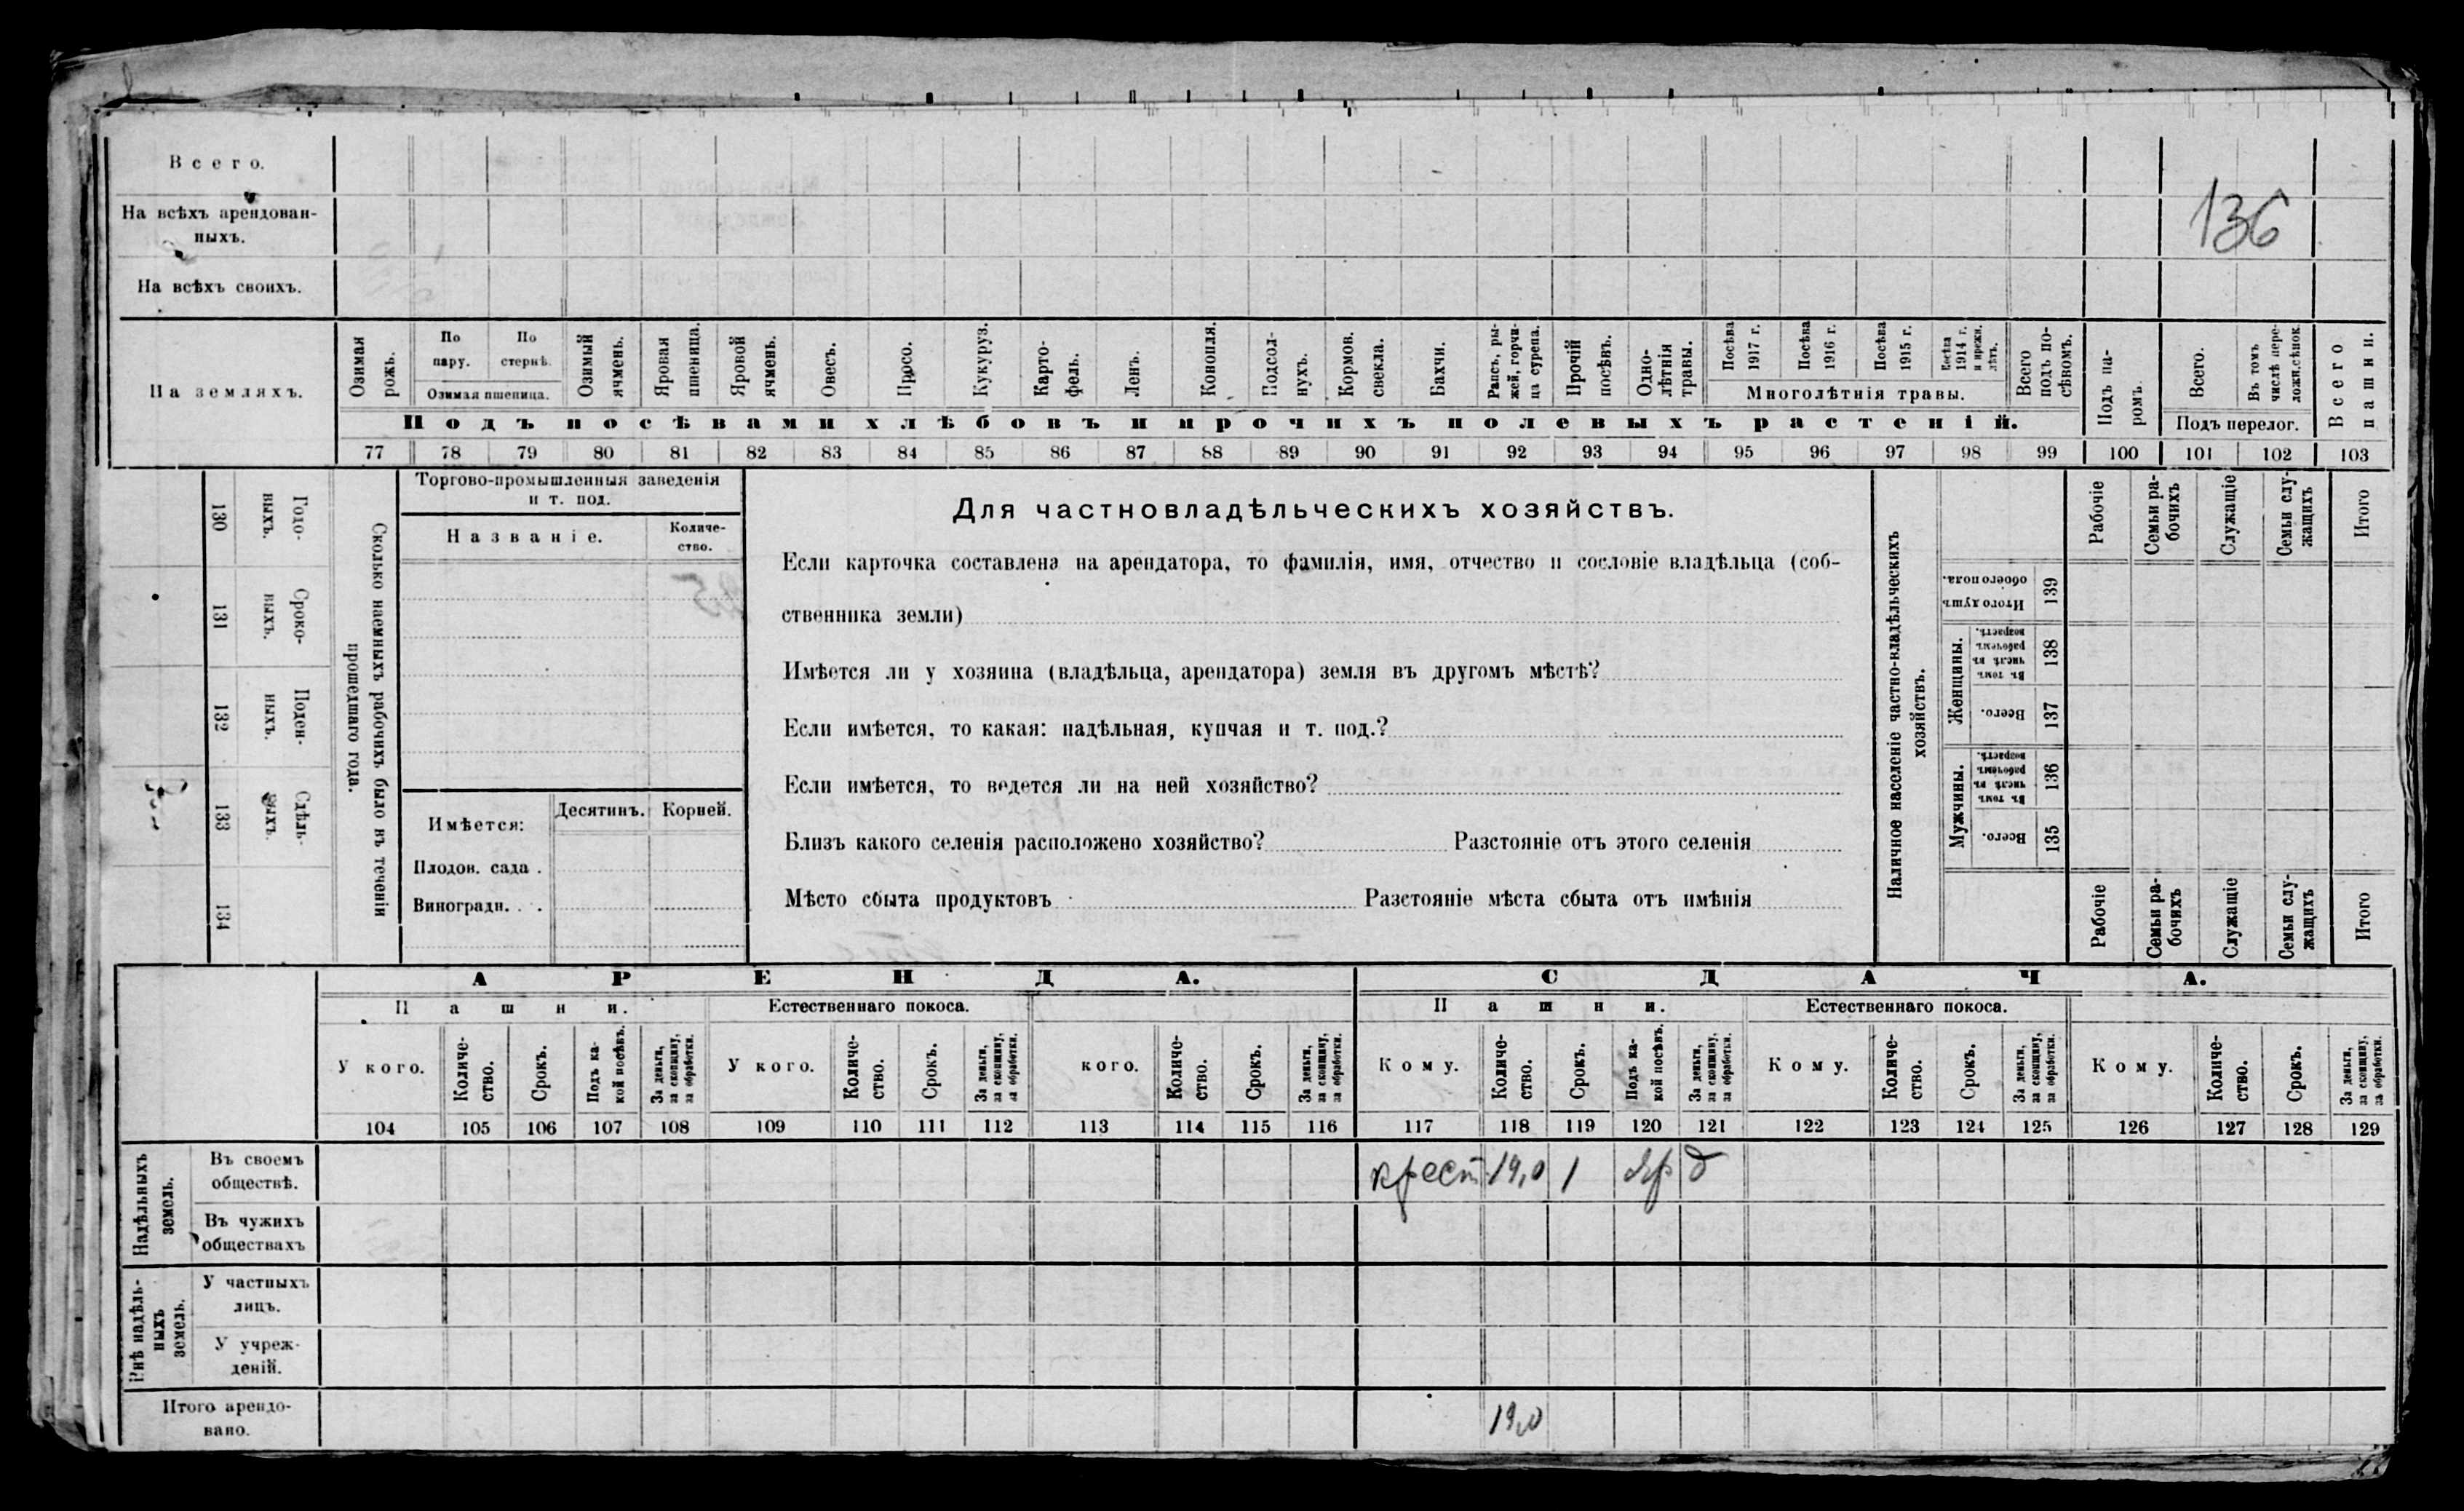 Всего.
На всѣхъ арендован-
ныхъ.
136
На всѣхъ своихъ.
На земляхъ.
Озимая рожь.
По пару.
По стернѣ.
Озимая пшеница.
Озимый ячмень.
Яровая пшеница.
Яровой ячмень.
Овесъ.
Просо.
Кукуруз.
Карто-
фель.
Ленъ.
Конопля.
Подсол-
нухъ.
Кормов. свекла.
Бахчи.
Рапсъ, ры-
жей, горчи-
ца сурепа.
Прочій посѣвъ.
Одно-
лѣтнія травы.
Посѣва 1917 г.
Посѣва 1916 г.
Посѣва 1915 г.
Посѣва 1914 г. и прежн. лѣтъ.
Многолѣтнія травы.
Всего подъ по-
сѣвомъ.
Подъ па-
ромъ.
Всего.
Въ томъ числѣ пере-
ложн.сѣнок.
Подъ перелог.
Всего пашни.
Подъ посѣвами хлѣбовъ и прочихъ полевыхъ растеній.
77 78 79 80 81 82 83 84 85 86 87 88 89 90 91 92 93 94 95 96 97 98 99 100 101 102 103
130 131 132 133 134
Годо-
выхъ.
Сроко-
выхъ.
Поден-
ныхъ.
Сдѣль-
ныхъ.
Сколько наемныхъ рабочихъ было въ теченіи
прошедшаго года.
Торгово-промышленныя заведенія
и т. под.
Названіе.
Количе-
ство.
Имѣется:
Десятинъ.
Корней.
Плодов. сада .
Виноградн. . .
Для частновладѣльческихъ хозяйствъ.
Если карточка составлена на арендатора, то фамилія, имя, отчество и сословіе владѣльца (соб-
ственника земли)
Имѣется ли у хозяина (владѣльца, арендатора) земля въ другомъ мѣстѣ?
Если имѣется, то какая: надѣльная, купчая и т. под.?
Если имѣется, то ведется ли на ней хозяйство?
Близъ какого селенія расположено хозяйство? Разстояніе отъ этого селенія
Мѣсто сбыта продуктовъ Разстояніе мѣста сбыта отъ имѣнія
Наличное населеніе частно-владѣльческихъ
хозяйствъ.
Рабочіе
Семьи ра-
бочихъ
Служащіе
Семьи слу-
жащихъ
Итого
Итого душъ обоего пола.
139
Женщины.
Въ томъ числѣ въ рабочемъ возрастѣ.
138
Всего.
137
Мужчины.
Въ томъ числѣ въ рабочемъ возрастѣ.
136
Всего.
135
Рабочіе
Семьи ра-
бочихъ
Служащіе
Семьи слу-
жащихъ
Итого
АРЕНДА.
СДАЧА.
Пашни.
Естественнаго покоса.
Пашни.
Естественнаго покоса.
У кого.
Количе-
ство.
Срокъ.
Подъ ка-
кой посѣвъ.
За деньги, за скопщину, за обработки.
У кого.
Количе-
ство.
Срокъ.
За деньги, за скопщину, за обработки.
кого.
Количе-
ство.
Срокъ.
За деньги, за скопщину, за обработки.
Кому.
Количе-
ство.
Срокъ.
Подъ ка-
кой посѣвъ.
За деньги, за скопщину, за обработки.
Кому.
Количе-
ство.
Срокъ.
За деньги, за скопщину, за обработки.
Кому.
Количе-
ство.
Срокъ.
За деньги, за скопщину, за обработки.
104 105 106 107 108 109 110 111 112 113 114 115 116 117 118 119 120 121 122 123 124 125 126 127 128 129
Надѣльныхъ
земель.
Въ своемъ
обществѣ.
крест 19,0 1 Яр д
Въ чужихъ
обществахъ
Внѣ надѣль-
ныхъ
земель.
У частныхъ
лицъ.
У учреж-
деній.
Итого арендо-
вано.
19,0